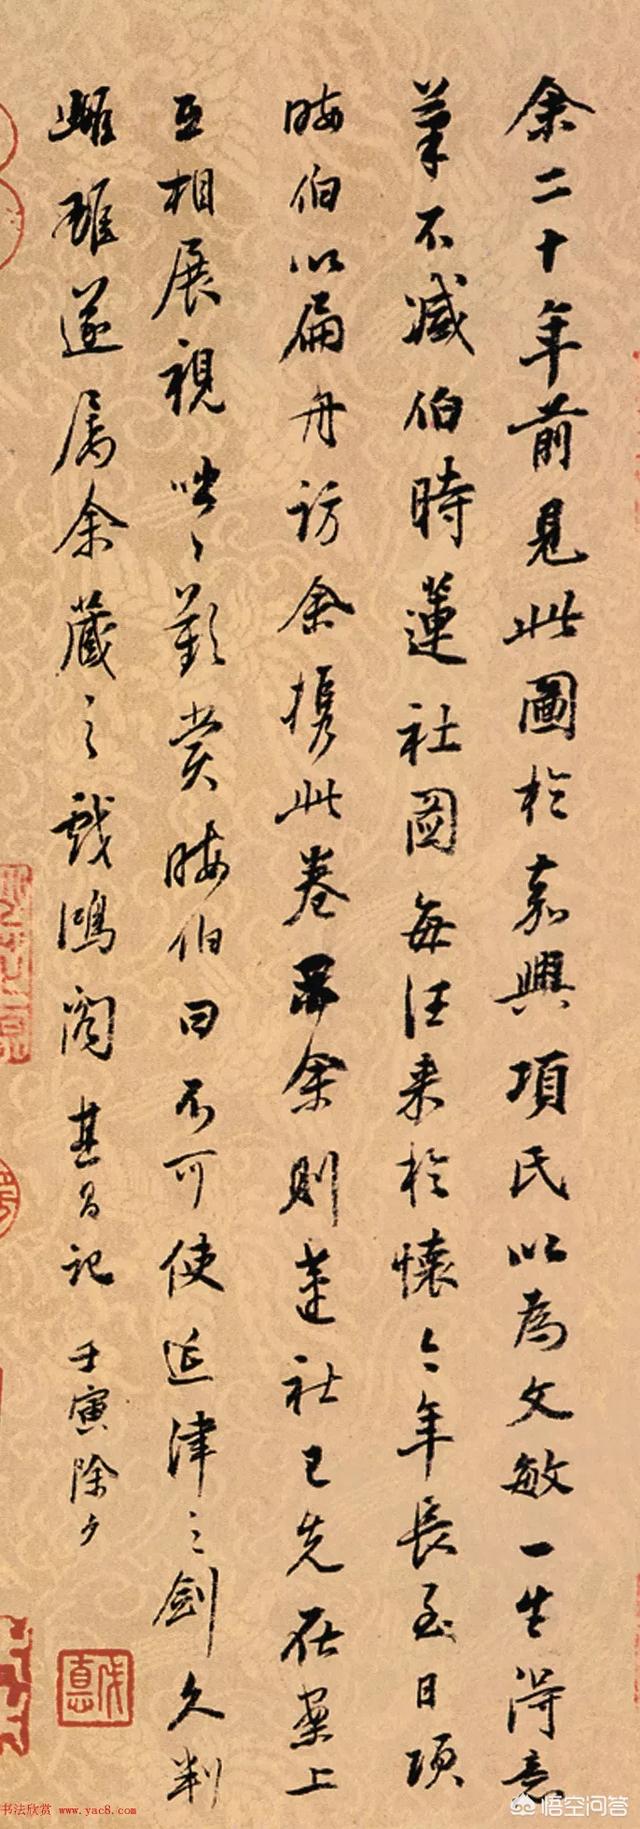 余二十年前見此圖於嘉興項氏以為文敏一生得意
筆不減伯時蓮社圖每往来於懷今年長至日項
晦伯以扁舟訪余攜此卷示余則蓮社已先在案上
互相展視咄咄歎賞晦伯曰不可使延津之劍久判
雌雄遂属余藏之戲鴻閣其昌記壬寅除夕
书法欣赏 www.yac8.com
悟空问答